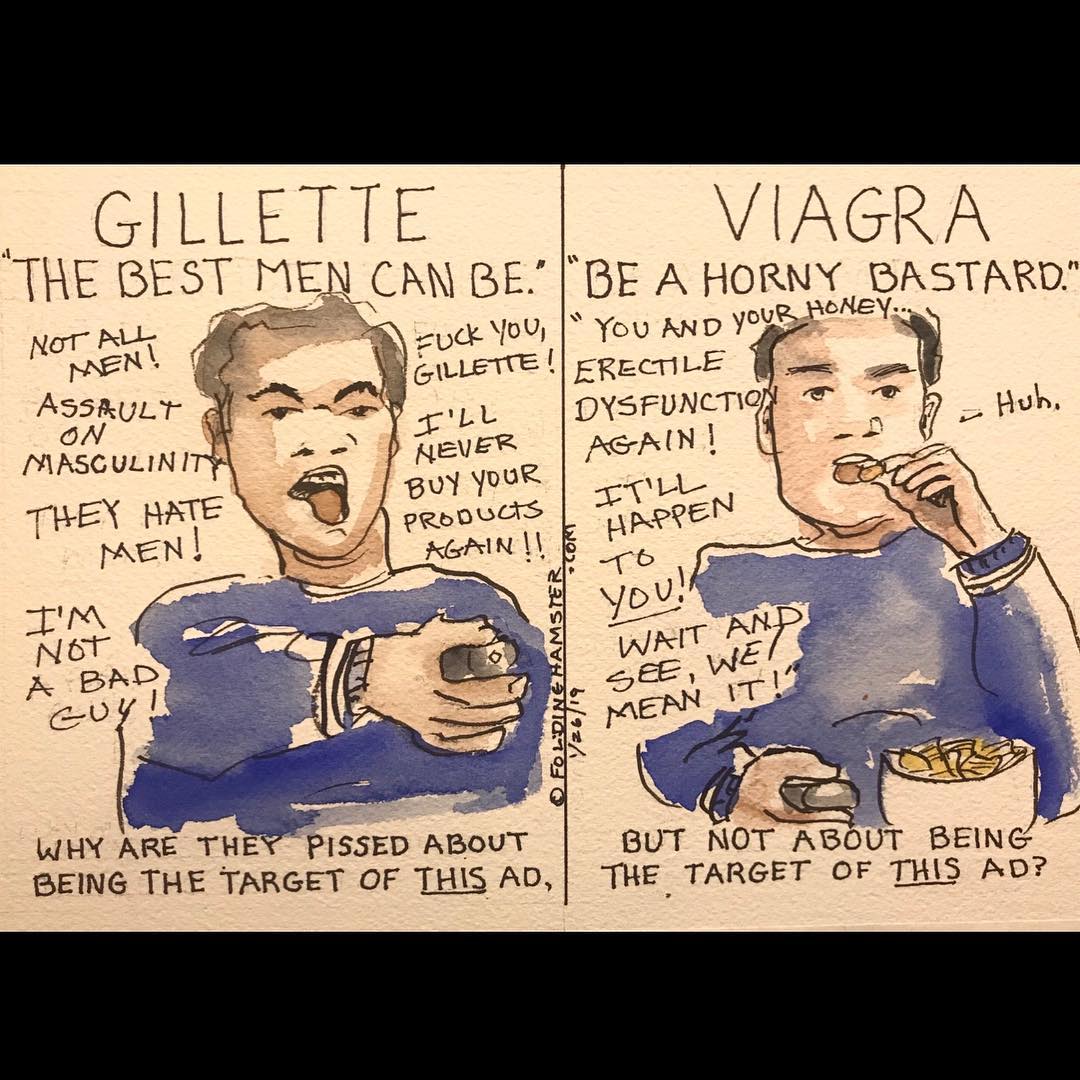 GILLETTE
"THE BEST MEN CAN BE."
NOT ALL
MEN!
ASSAULT
ON
MASCULINITY
THEY HATE
MEN!
I'M
NOT
A BAD
GUY!
FUCK YOU,
GILLETTE!
I'LL
NEVER
BUY YOUR
PRODUCTS
AGAIN!!
WHY ARE THEY PISSED ABOUT
BEING THE TARGET OF THIS AD,
© FOLDINGHAMSTER.COM
1/26/19
VIAGRA
"BE A HORNY BASTARD."
"YOU AND YOUR HONEY...
ERECTILE
DYSFUNCTION
AGAIN!
IT'LL
HAPPEN
TO
YOU!
WAIT AND
SEE, WE
MEAN IT!"
- Huh.
BUT NOT ABOUT BEING
THE TARGET OF THIS AD?